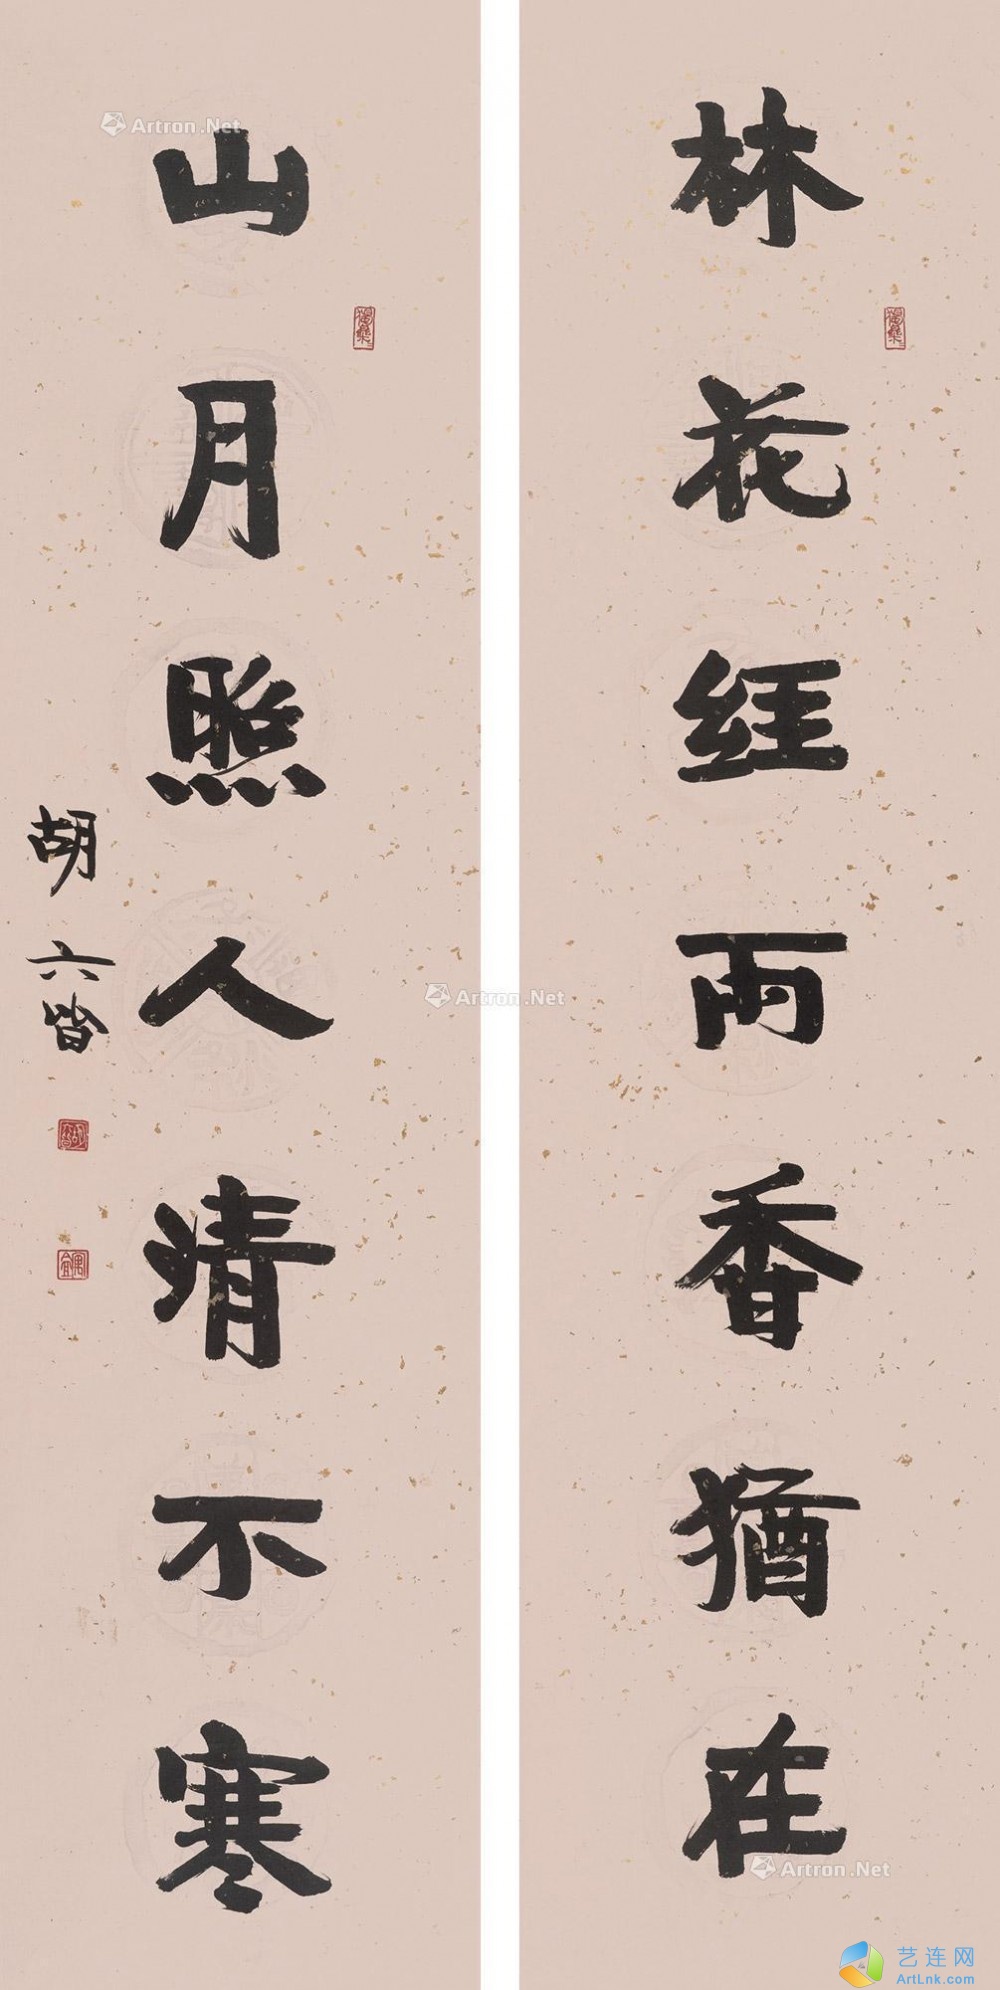 林花經雨香猶在
山月照人清不寒
胡六皆
Artron.Net
Artron.Net
Artron.Net
艺连网
ArtLnk.com